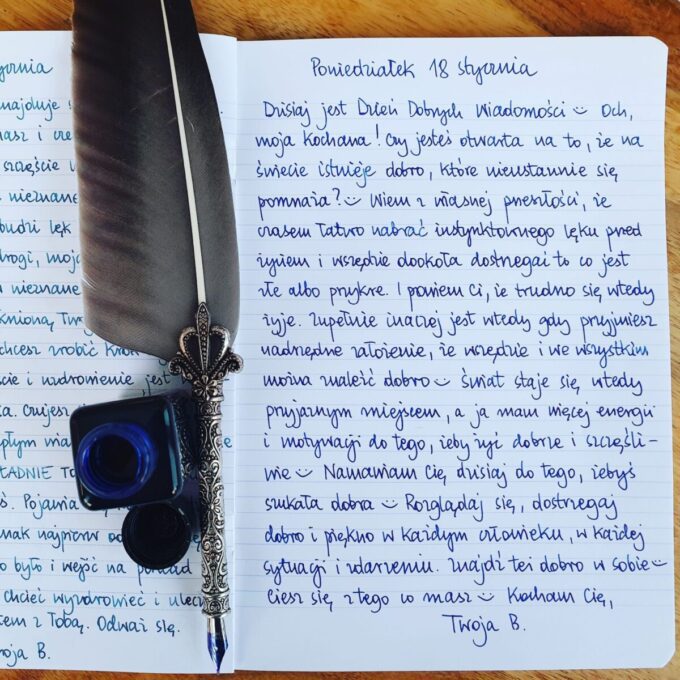 ycznia
najduje s
nasz i cze
szczęście w
nieznane
budzi lęk
drogi, moja
nieznane
kniona, Two
chcesz zrobić krok
ście i uzdrowienie jest w
ka. Czujesz
epłym
ŁADNIE To
ś. Pojawia
nak najpierw od
o było i wejść na ponad
chcieć wyzdrowieć i ulec
tem z Tobą. Odważ się.
woja B.
Poniedziałek 18 stycznia
Dzisiaj jest Dzień Dobrych Wiadomości Och,
moja Kochana! Czy jesteś otwarta na to, że na
świecie istnieje dobro, które nieustannie się
pomnaża? Wiem z własnej przeszłości, że
czasem łatwo nabrać instynktownego lęku przed
życiem i wszędzie dookoła dostrzegać to co jest
złe albo przykre. I powiem Ci, że trudno się wtedy
żyje. Zupełnie inaczej jest wtedy gdy przyjmiesz
nadrzędne założenie, że wszędzie i we wszystkim
można znaleźć dobro świat staje się wtedy
przyjaznym miejscem, a ja mam więcej energii
i motywacji do tego, żeby żyć dobrze i szczęśli-
wie Namawiam Cię dzisiaj do tego, żebyś
szukała dobra Rozglądaj się, dostrzegaj
dobro i piękno w każdym człowieku, w każdej
sytuacji i zdarzeniu. Znajdź też dobro w sobie
Ciesz się z tego co masz Kocham Cię,
Twoja B.